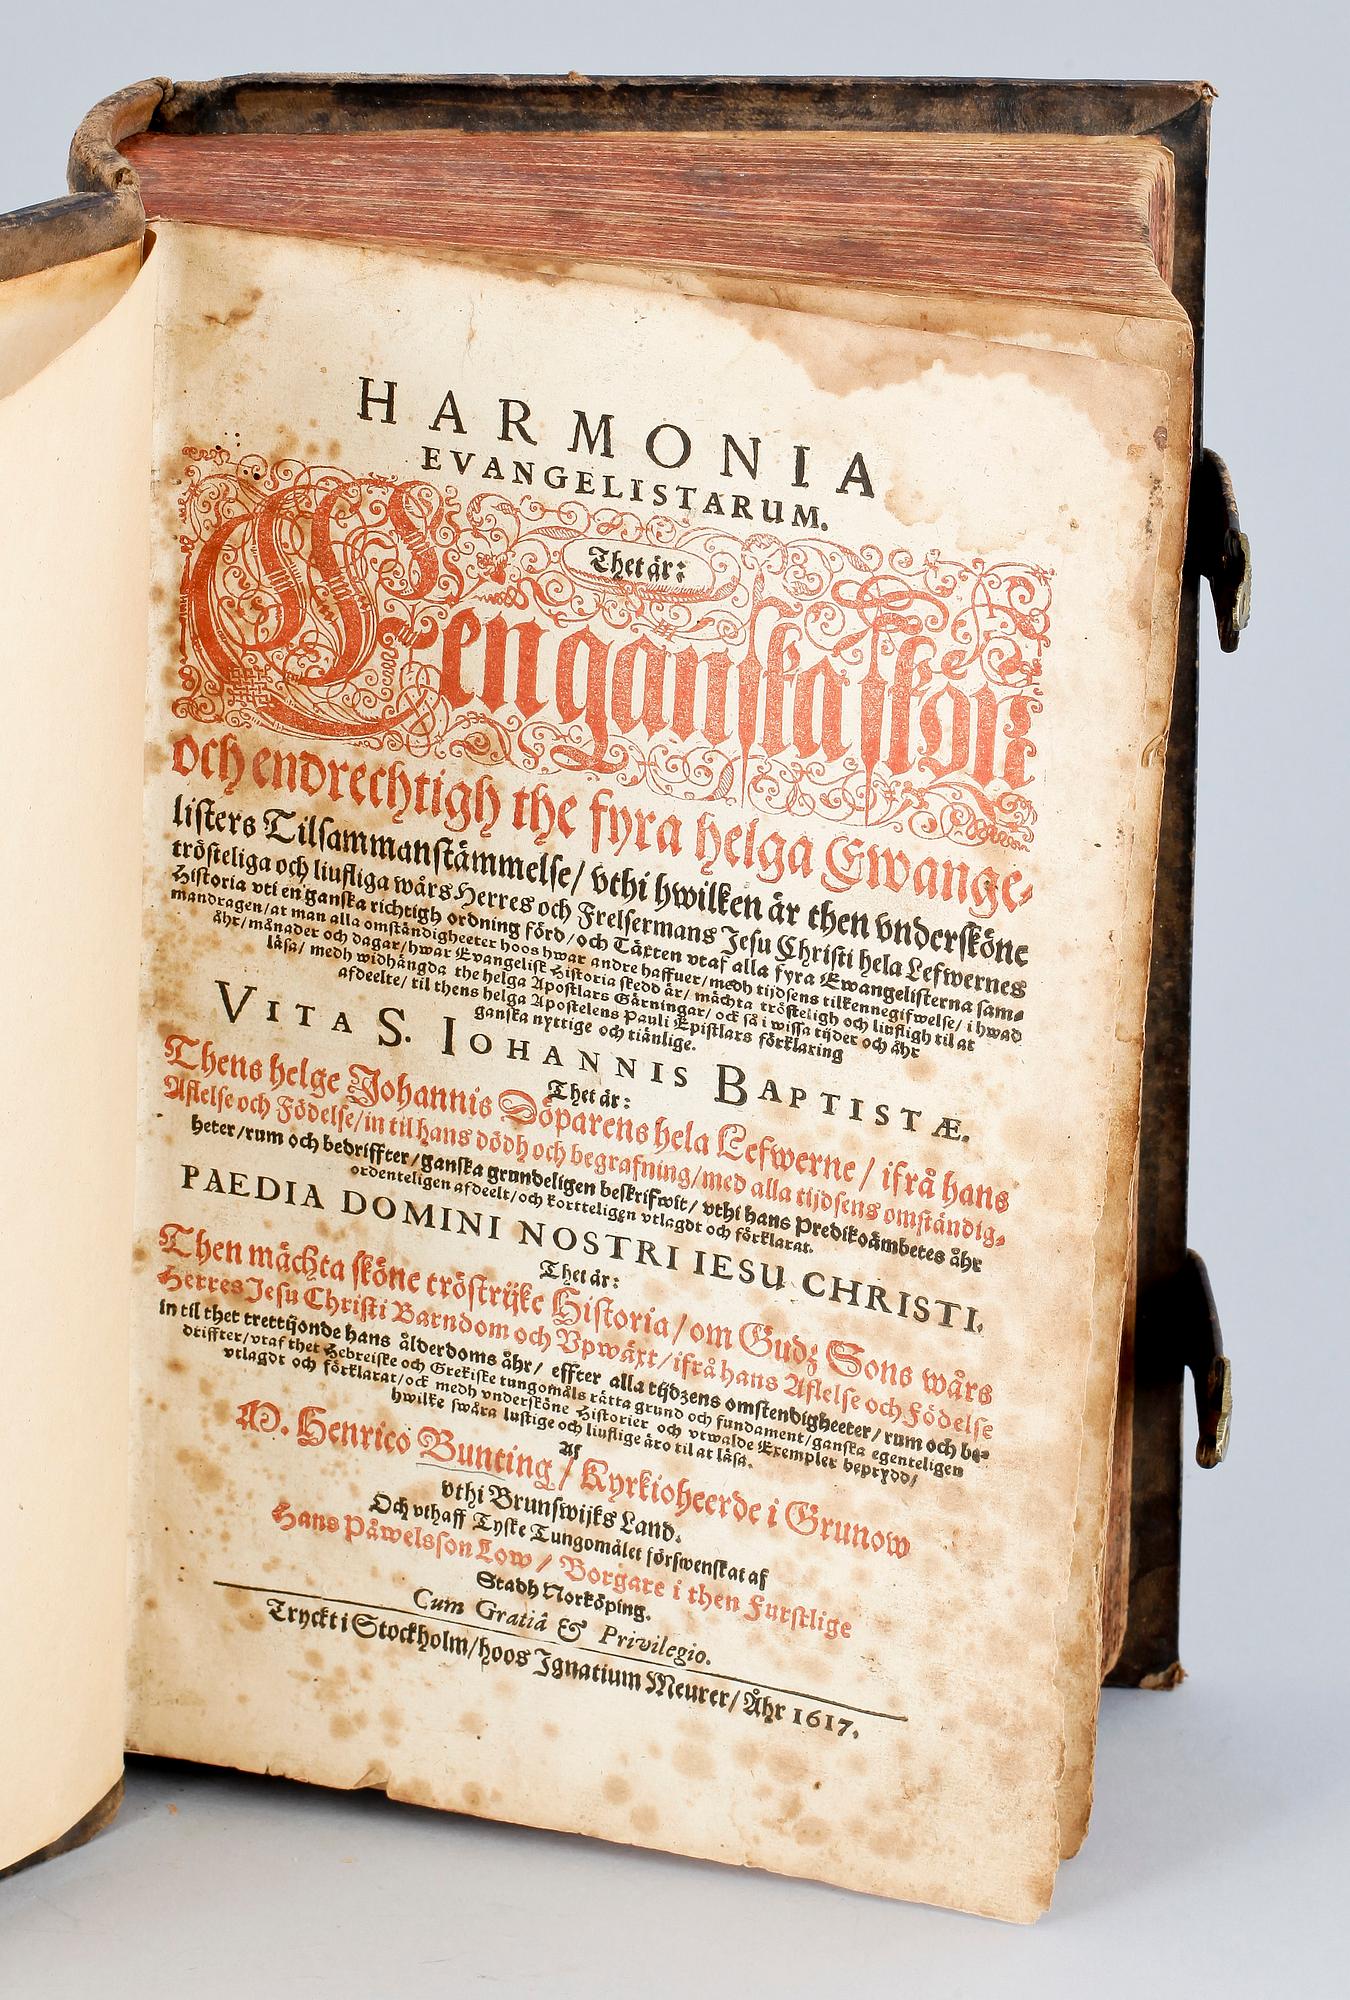 HARMONIA
EVANGELISTARUM.
Thet är:
En ganska skön
och endrechtigh the fyra helga Ewange-
listers Tilsammanstämmelse/ vthi hwilken är then vndersköne
trösteliga och liufliga wårs Herres och Frelsermans Jesu Christi hela Lefwernes
Historia vti en ganska richtigh ordning förd/ och Täxten vtaf alla fyra Ewangelisterna sam-
mandragen/ at man alla omständigheeter hoos hwar andre haffuer/ medh tijdsens tilkennegifwelse/ i hwad
åhr/ månader och dagar/ hwar Evangelisk Historia skedd är/ mächta trösteligh och liufligh til at
läsa/ medh widhängda the helga Apostlars Gärningar/ ock så i wissa tijder och åhr
afdeelte/ til thens helga Apostelens Pauli Epistlars förklaring
ganska nyttige och tiänlige.
VITA S. IOHANNIS BAPTISTÆ.
Thet är:
Thens helge Johannis Döparens hela Lefwerne/ ifrå hans
Aflelse och Födelse/ in til hans dödh och begrafning/ med alla tijdsens omständig-
heter/ rum och bedriffter/ ganska grundeligen beskrifwit/ vthi hans Predikoämbetes åhr
ordenteligen afdeelt/ och kortteligen vtlagdt och förklarat.
PAEDIA DOMINI NOSTRI IESU CHRISTI.
Thet är:
Then mächta sköne tröstrijke Historia/ om Gudz Sons wårs
Herres Jesu Christi Barndom och Vpwäxt/ ifrå hans Aflelse och Födelse
in til thet trettijonde hans ålderdoms åhr/ effter alla tijdzens omstendigheeter/ rum och be-
driffter/ vtaf thet Hebreiske och Grekiske tungomåls rätta grund och fundament/ ganska egenteligen
vtlagdt och förklarat/ ock medh vndersköne Historier och vtwalde Exempler beprydd/
hwilke swåra lustige och liuflige äro til at läsa.
Af
M. Henrico Bunting/ Kyrkioheerde i Grunow
vthi Brunswijks Land.
Och vthaff Tyske Tungomålet förswenskat af
Hans Påwelsson Low/ Borgare i then Furstlige
Stadh Norköping.
Cum Gratiâ & Privilegio.
Tryckt i Stockholm/ hoos Ignatium Meurer/ Åhr 1617.